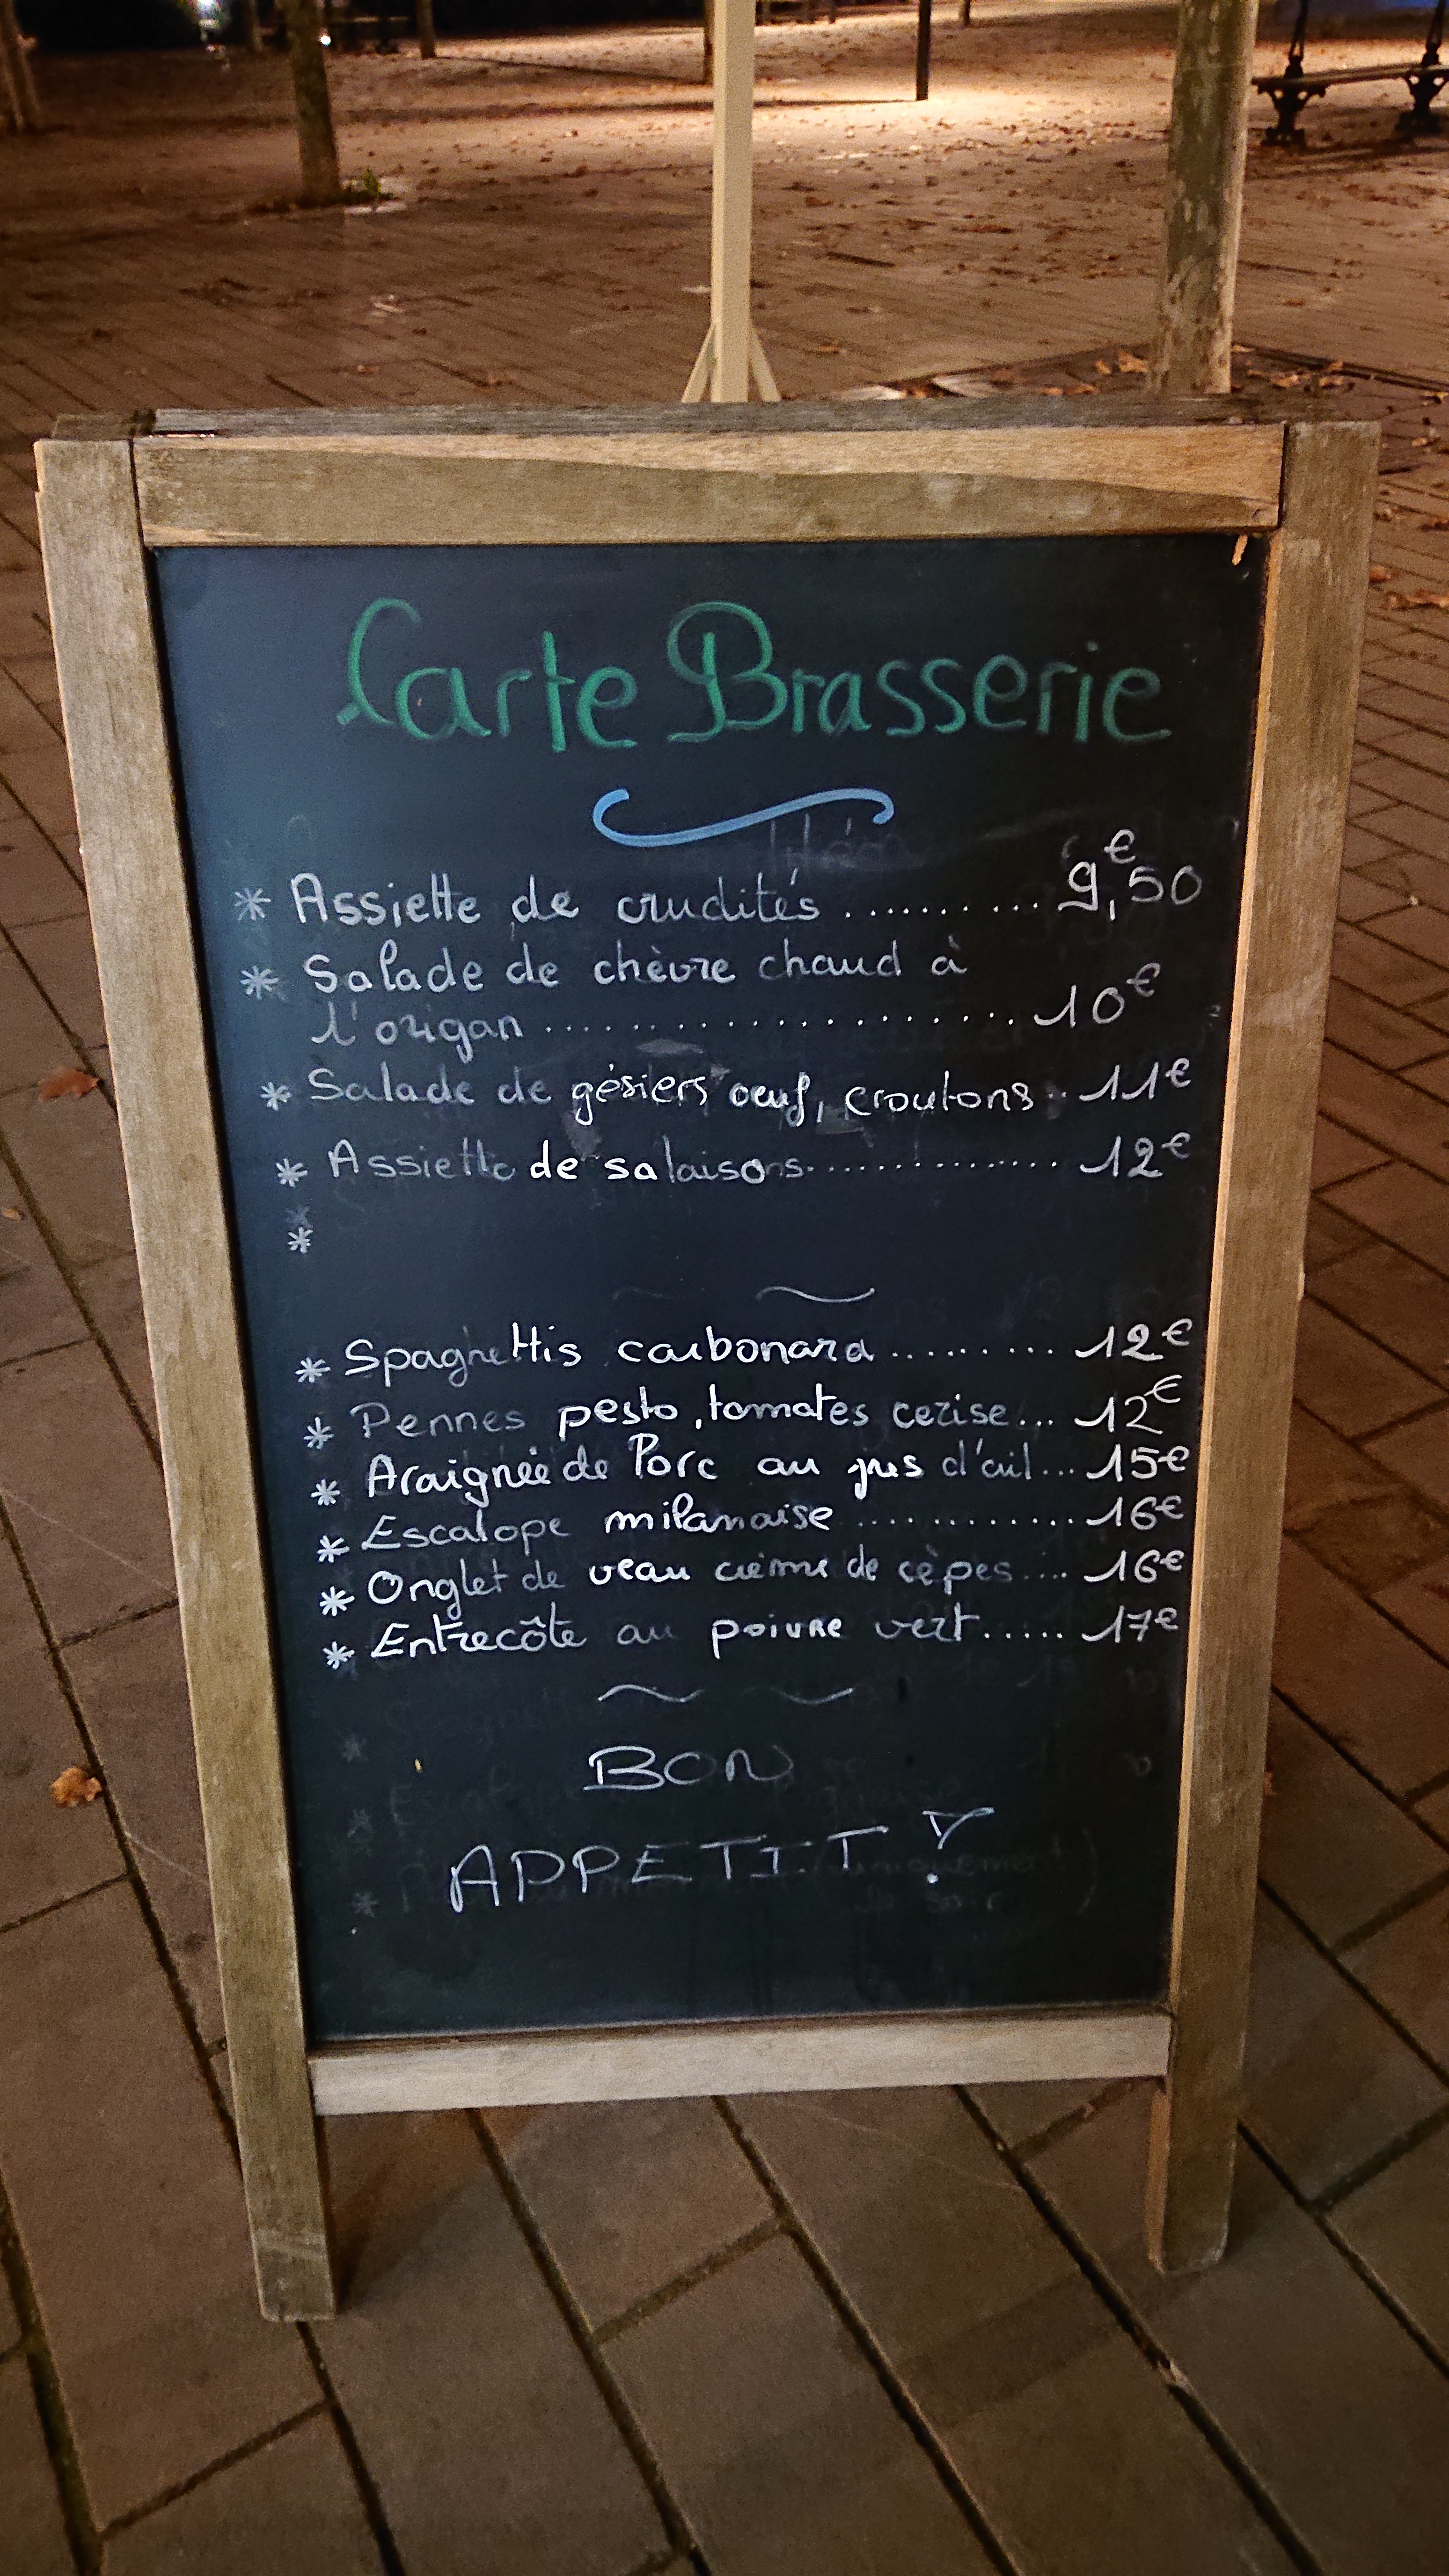 Carte Brasserie
* Assiette de crudités .......... 9,€50
* Salade de chèvre chaud à
l'origan ..................... 10€
* Salade de gésiers oeuf, croutons .. 11€
* Assiette de salaisons .............. 12€
*
* Spaghettis carbonara ......... 12€
* Pennes pesto, tomates cerise ... 12€
* Araignée de Porc au jus d'ail ... 15€
* Escalope milanaise ............ 16€
* Onglet de veau crème de cèpes .... 16€
* Entrecôte au poivre vert ..... 17€
BON
APPETIT !